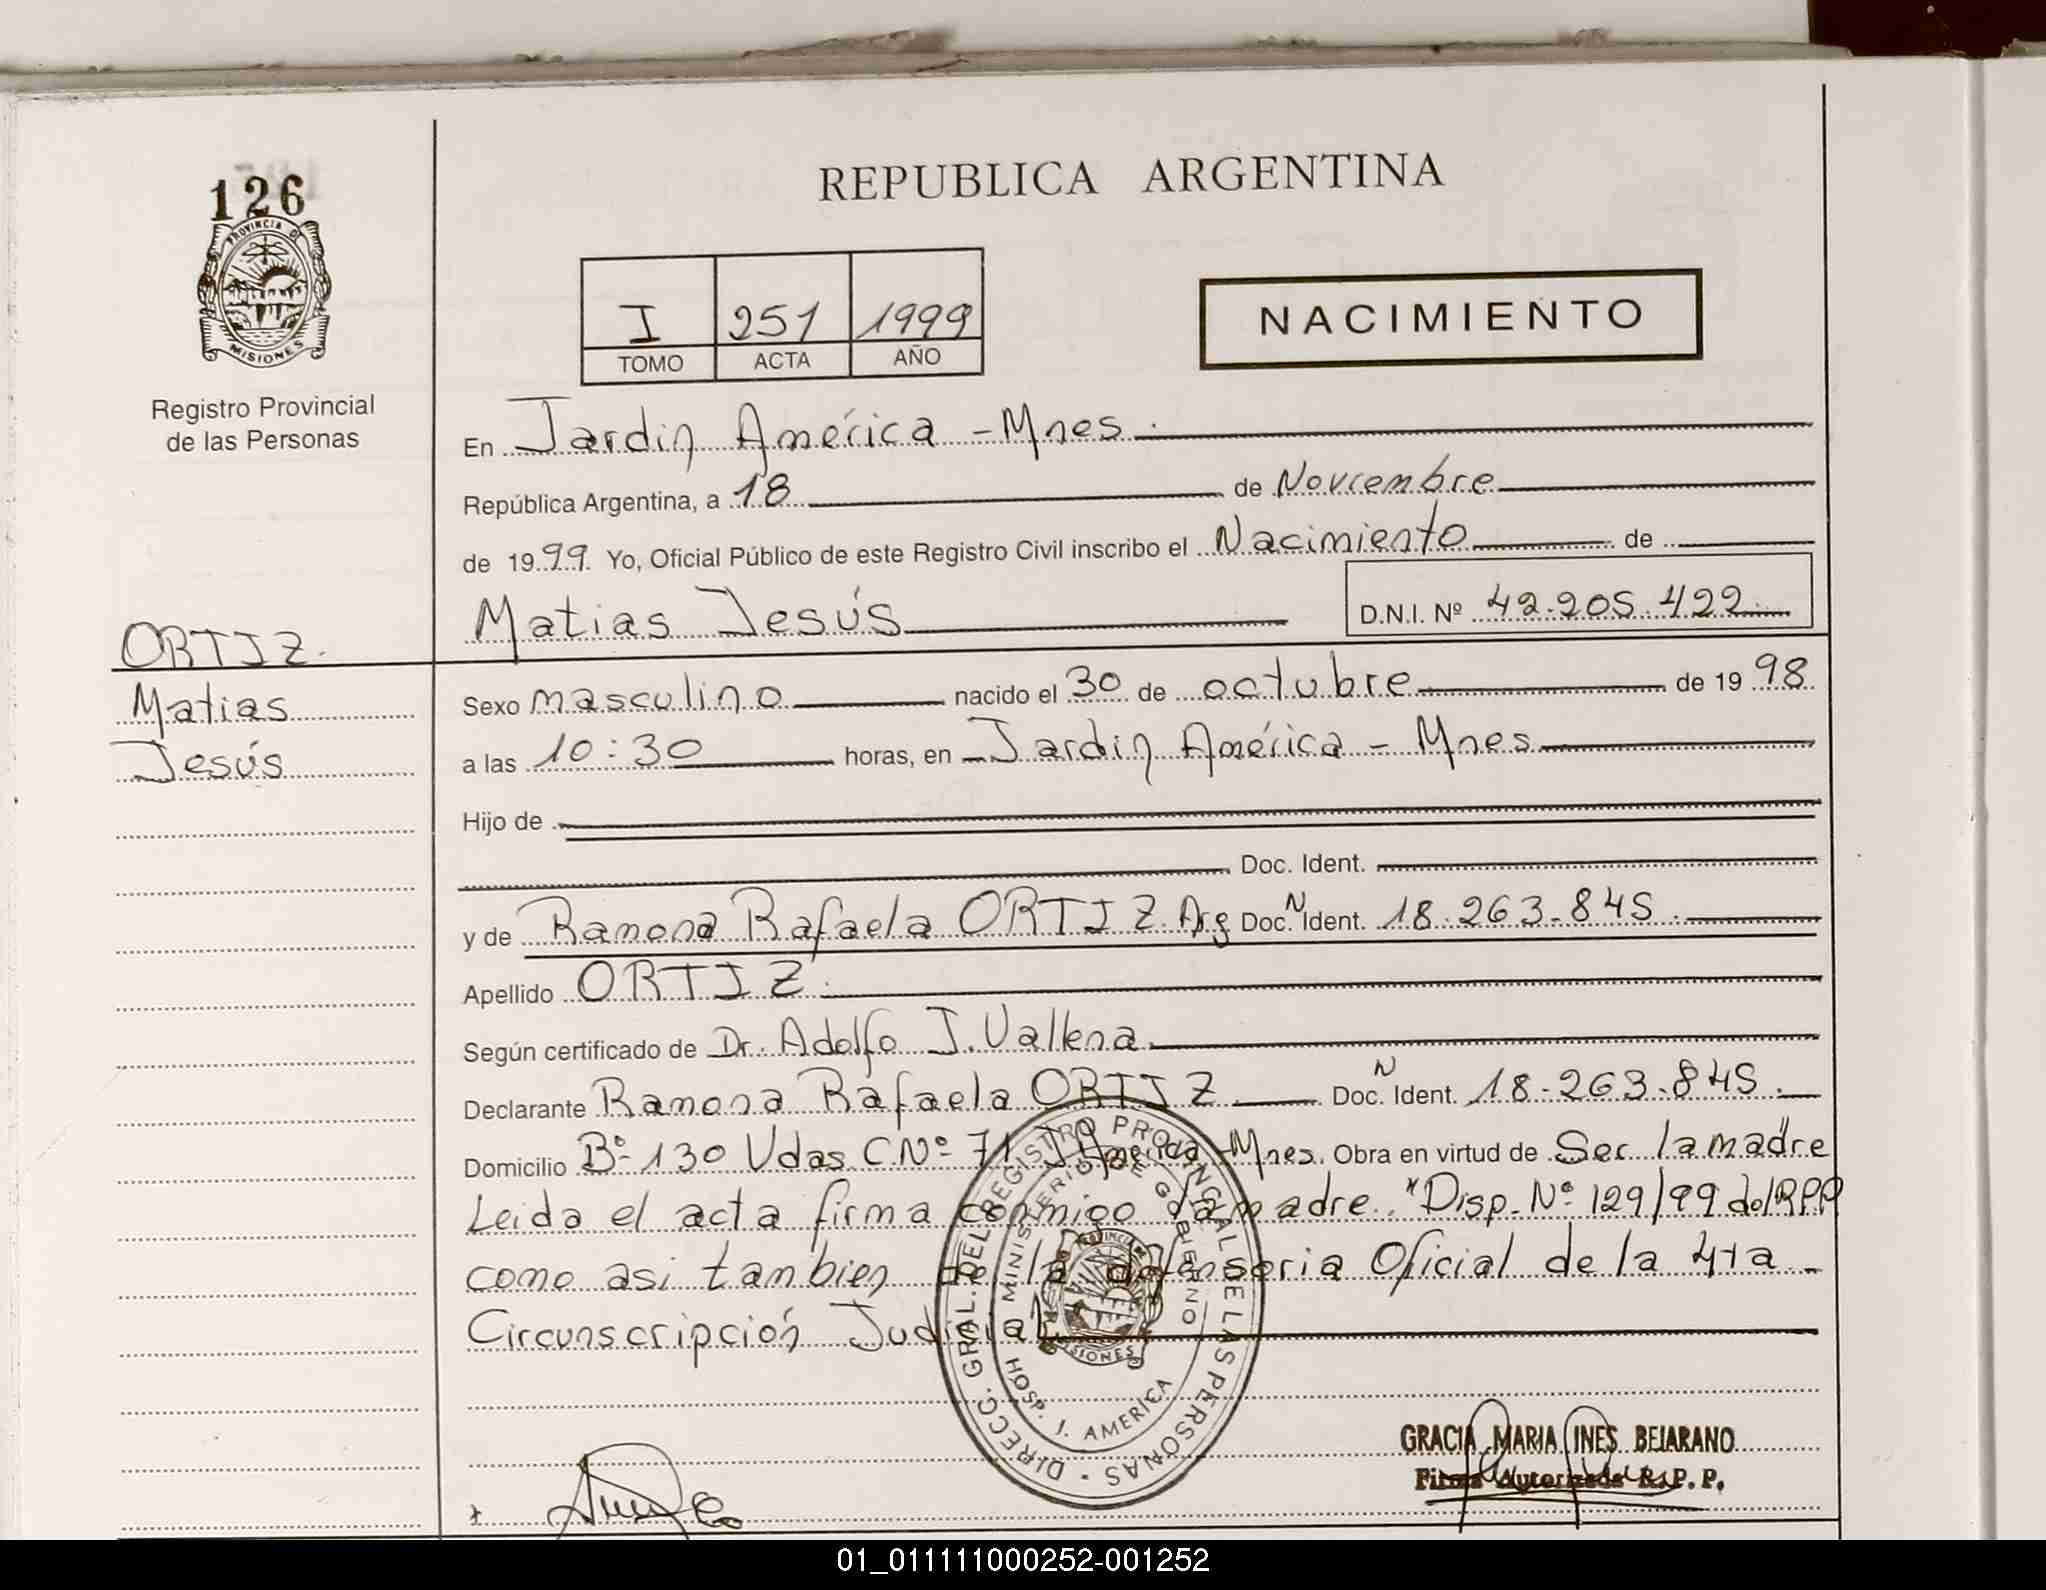 126
PROVINCIA DE
MISIONES
Registro Provincial
de las Personas
ORTIZ.
Matias
Jesús
REPUBLICA ARGENTINA
I 251 1999
TOMO ACTA AÑO
NACIMIENTO
En Jardin América - Mnes.
República Argentina, a 18 de Noviembre
de 1999 Yo, Oficial Público de este Registro Civil inscribo el Nacimiento de
Matias Jesús D.N.I. Nº 42.205.422
Sexo masculino nacido el 30 de octubre de 1998
a las 10:30 horas, en Jardin América - Mnes
Hijo de
Doc. Ident.
y de Ramona Rafaela ORTIZ Arg Doc. N Ident. 18.263.845
Apellido ORTIZ
Según certificado de Dr. Adolfo J. Vallena
Declarante Ramona Rafaela ORTIZ Doc. N Ident. 18.263.845.
Domicilio Bº 130 Vdas C.Nº 71 J. America Mnes. Obra en virtud de Ser la madre
Leida el acta firma conmigo la madre. "Disp. Nº 129/99 del RPP
como asi tambien de la defensoria Oficial de la 4ta
Circunscripción Judicial
DIRECC. GRAL. DEL REGISTRO PROVINCIAL DE LAS PERSONAS
MINISTERIO DE GOBIERNO
PROVINCIA DE
MISIONES
HOSP. J. AMERICA
GRACIA MARIA INES BEJARANO
Firma Autorizada R.P.P.
01_011111000252-001252